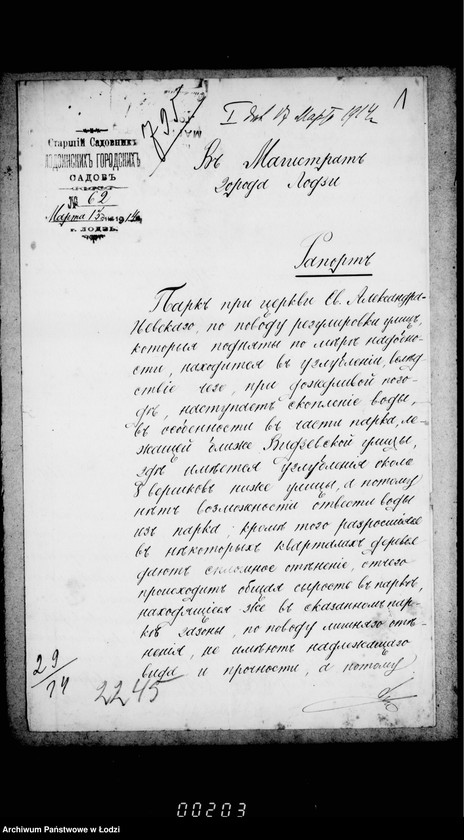 1
I дѣл. 17 Март 1914 г.
735
Старшій Садовникъ
Лодзинскихъ Городскихъ
САДОВЪ
№ 62
Марта 15 дня 1914 г.
г. ЛОДЗЬ.
Въ Магистратъ
города Лодзи
Рапортъ
Паркъ при церкви Св. Александра-
Невскаго, по поводу регулировки улицъ,
которыя подняты по мѣрѣ надобно-
сти, находится въ углубленіи, вслѣд-
ствіе чего, при дождливой пого-
дѣ, наступаетъ скопленіе воды,
въ особенности въ части парка, ле-
жащей ближе Видзевской улицы,
гдѣ имѣется углубленія около
8 вершковъ ниже улицы, а потому
нѣтъ возможности отвести воды
изъ парка; кромѣ того разросшіяся
въ нѣкоторыхъ кварталахъ деревья
даютъ сплошное отѣненіе, отчего
происходитъ общая сырость въ паркѣ,
находящіеся же въ сказанномъ пар-
кѣ газоны, по поводу лишняго отѣ-
ненія, не имѣютъ надлежащаго
вида и прочности, а потому
29/14
2245
00203
Archiwum Państwowe w Łodzi